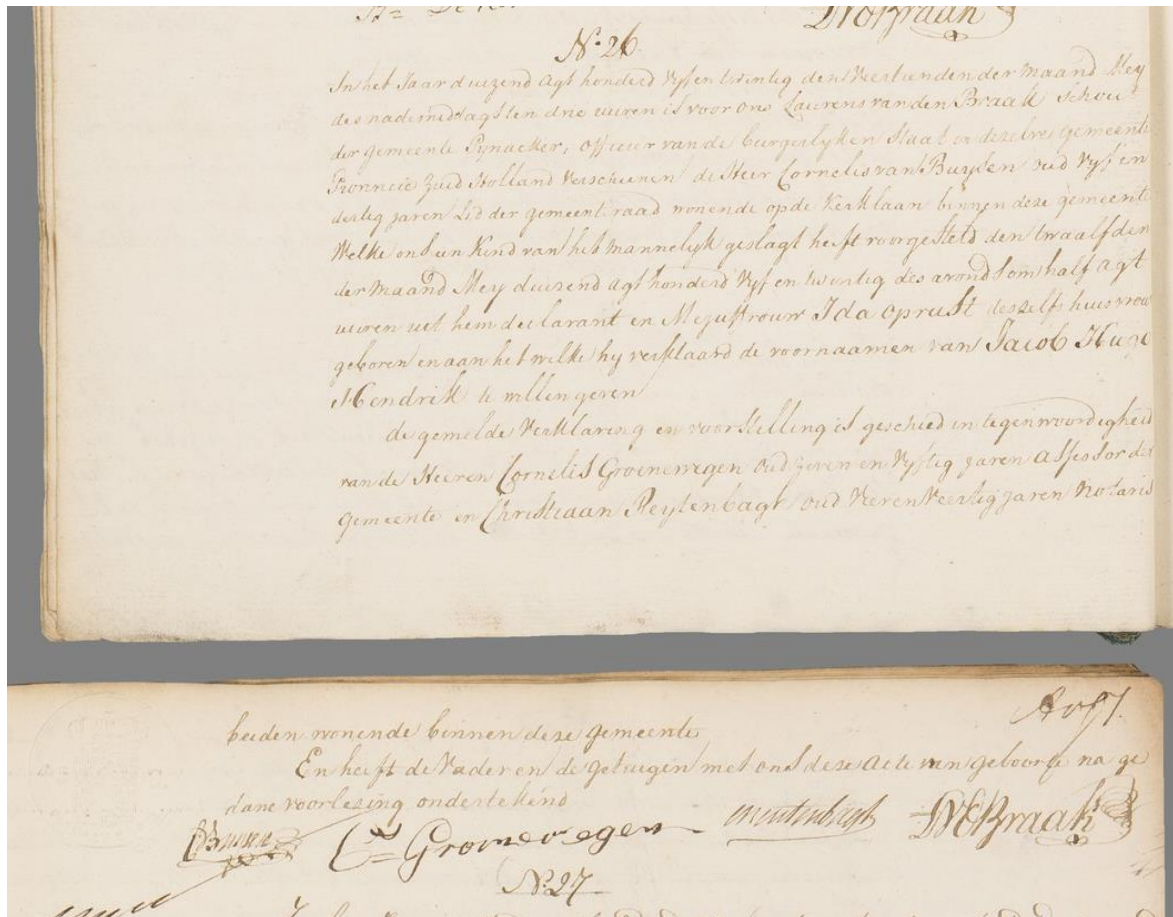 DVDBraak
N.º 26
In het Jaar duizend agt honderd Vyf en twintig den Veertienden der maand Mey
des nademiddags ten drie uuren is voor ons Laurens van den Braak Schout
der gemeente Pynacker, officier van de burgerlyken Staat in dezelve gemeente
Provincie Zuid Holland Verscheenen de Heer Cornelis van Buyten oud Vyf en
dertig jaren Lid der gemeent raad wonende op de Kerklaan binnen deze gemeente
Welke ons een Kind van het mannelyk geslagt heeft voorgesteld den twaalfden
der maand Mey duizend agt honderd Vyf en twintig des avonds om half agt
uuren uit hem declarant en Mejuffrouw Ida oprust deszelfs huisvrouw
geboren en aan het welke hy verklaard de voornaamen van Jacob Hugo
Hendrik te willen geven
de gemelde Verklaring en voorstelling is geschied in tegenwoordigheid
van de Heeren Cornelis Groenewegen oud zeven en Vyftig jaren assessor der
gemeente en Christiaan Reytenbagt oud Vier en Veertig jaren notaris
beiden wonende binnen deze gemeente
En heeft de Vader en de getuigen met ons deze acte van geboorte na ge
dane voorlezing ondertekend
Cs Groenewegen DVDBraak
N.º 27